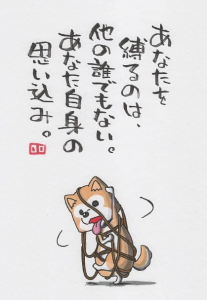 あなたを
縛るのは、
他の誰でもない。
あなた自身の
思い込み。